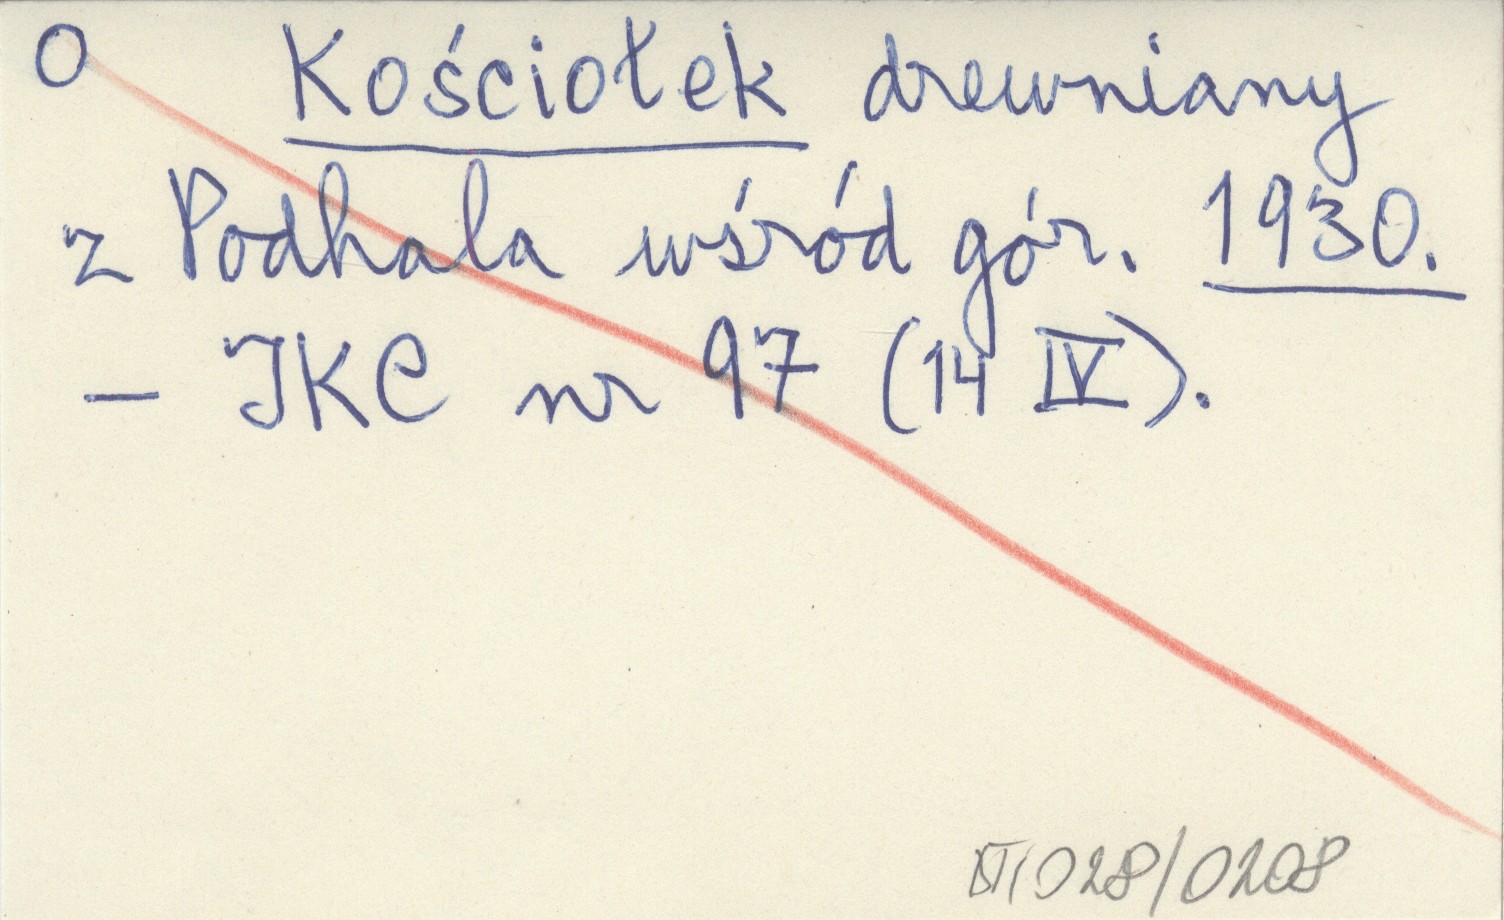 O Kościołek drewniany
z Podhala wśród gór. 1930.
- IKC nr 97 (14 IV).
028/0208